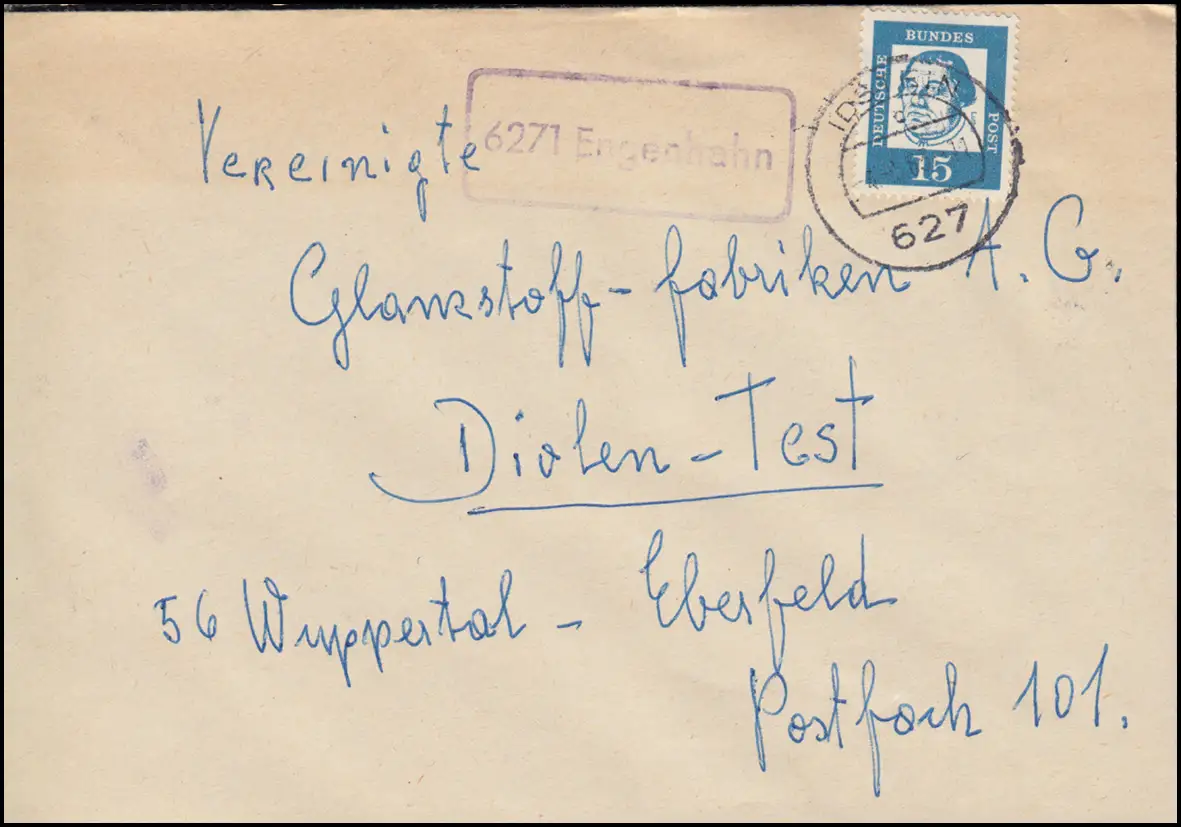 BUNDES
DEUTSCHE
POST
15
627
6271 Engenhahn
Vereinigte
Glanzstoff-fabriken A. G.
Diolen-Test
56 Wuppertal - Eberfeld
Postfach 101.